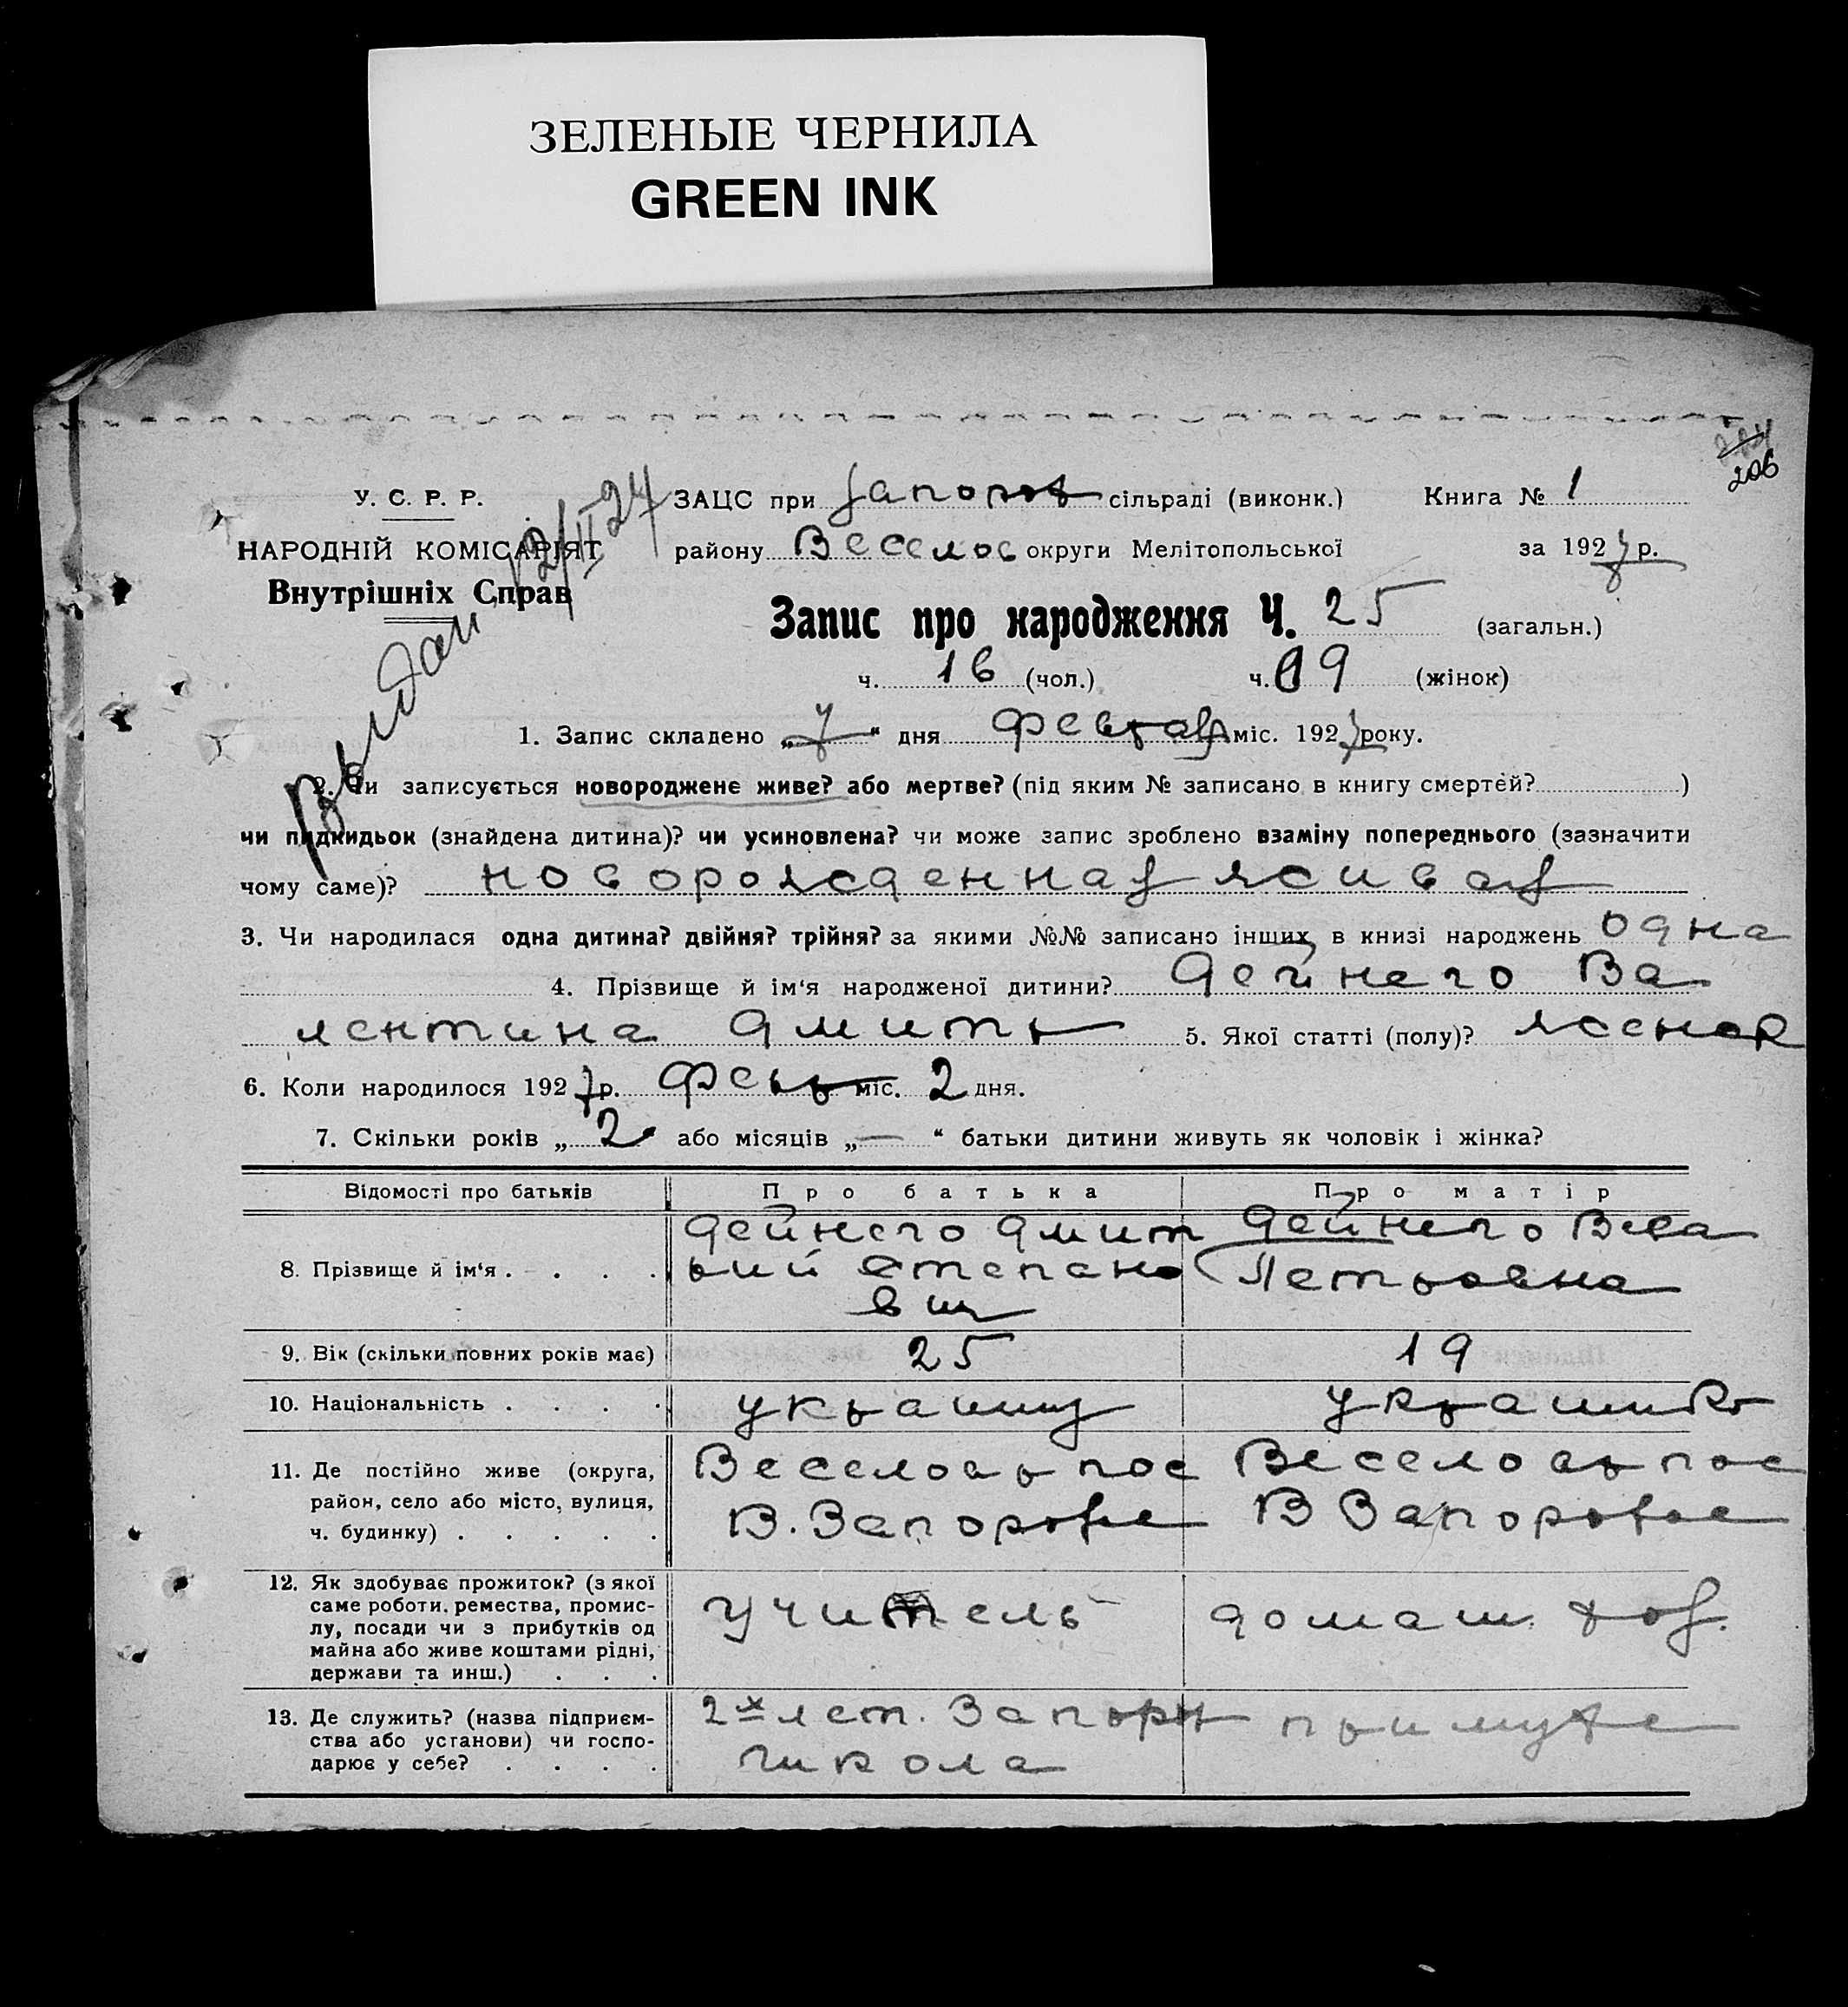 ЗЕЛЕНЫЕ ЧЕРНИЛА
GREEN INK
206
У. С. Р. Р.
НАРОДНІЙ КОМІСАРІЯТ
Внутрішніх Справ
ЗАЦС при Запорож сільраді (виконк.) Книга № 1
району Веселов округи Мелітопольської за 1927 р.
Запис про народження Ч. 25 (загальн.)
ч. 16 (чол.) ч. 09 (жінок)
1. Запис складено „7“ дня Февраля міс. 1927 року.
2. Чи записується новороджене живе? або мертве? (під яким № записано в книгу смертей? )
чи підкидьок (знайдена дитина)? чи усиновлена? чи може запис зроблено взаміну попереднього (зазначити
чому саме)? новорожденная живая
3. Чи народилася одна дитина? двійня? трійня? за якими №№ записано інших в книзі народжень одна
4. Прізвище й ім‘я народженої дитини? Дейнего Ва
лентина Дмитр 5. Якої статті (полу)? женск
6. Коли народилося 1927 р. Февр міс. 2 дня.
7. Скільки років „2“ або місяців „—“ батьки дитини живуть як чоловік і жінка?
Відомості про батьків Про батька Про матір
8. Прізвище й ім‘я . . . . Дейнего Дмит Дейнего Вера
рий Степано Петровна
вич
9. Вік (скільки повних років має) 25 19
10. Національність . . . . украинц украинк
11. Де постійно живе (округа, Веселовр пос Веселовр пос
район, село або місто, вулиця, В. Запорожье В Запорожье
ч. будинку) . . . . .
12. Як здобуває прожиток? (з якої
саме роботи, ремества, промис-
лу, посади чи з прибутків од учитель домаш. хоз.
майна або живе коштами рідні,
держави та инш.) . . .
13. Де служить? (назва підприєм- 2х лет. Запорж при муже
ства або установи) чи госпо- школа
дарює у себе? . . . .